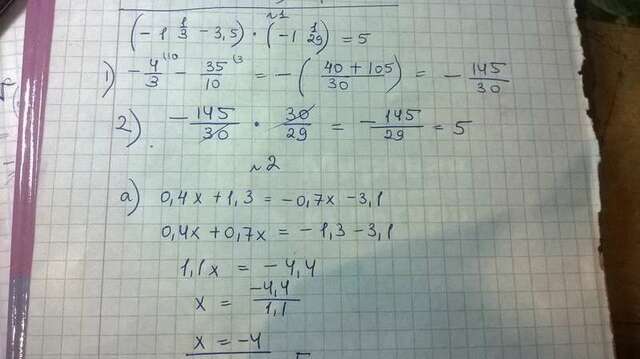 №1
(-1 1/3 - 3,5) · (-1 1/29) = 5
1) - 4/3 (10 - 35/10 (3 = - (40 + 105 / 30) = - 145/30
2) - 145/30 · 30/29 = - 145/29 = 5
№2
а) 0,4x + 1,3 = -0,7x - 3,1
0,4x + 0,7x = -1,3 - 3,1
1,1x = -4,4
x = -4,4/1,1
x = -4